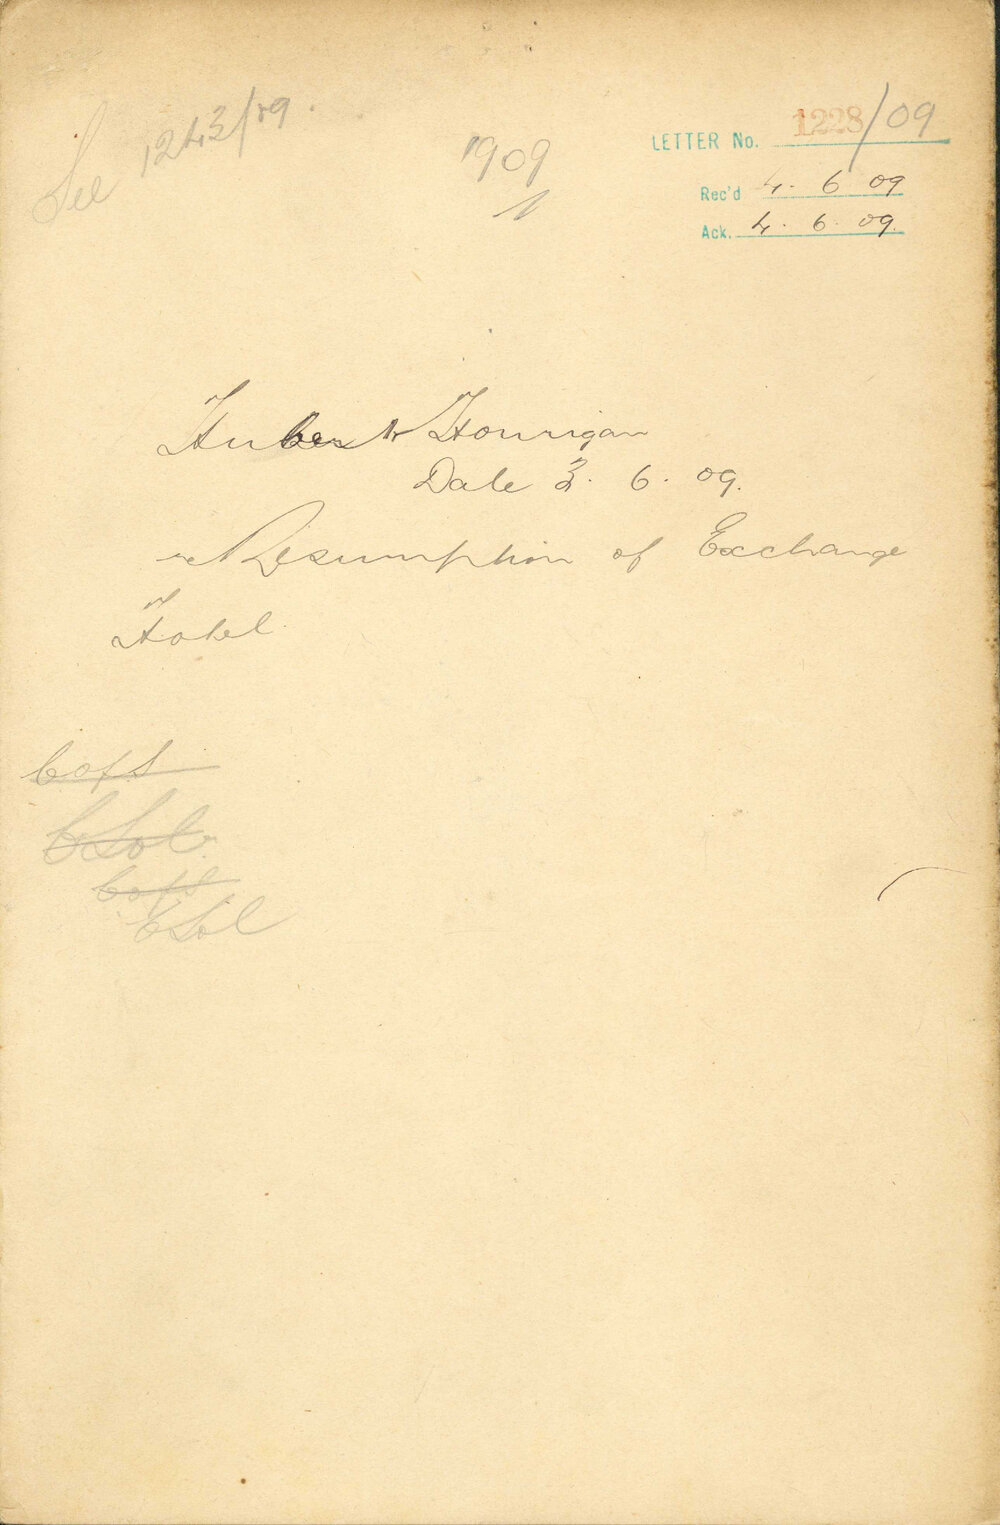 See 1243/09.
1909
1
LETTER No. 1228/09
Rec'd 4. 6 09
Ack. 4. 6. 09.
Hourigan
Date 3. 6. 09.
Resumption of Exchange
Hotel.
C of S
C Sol
C of S
C Sol